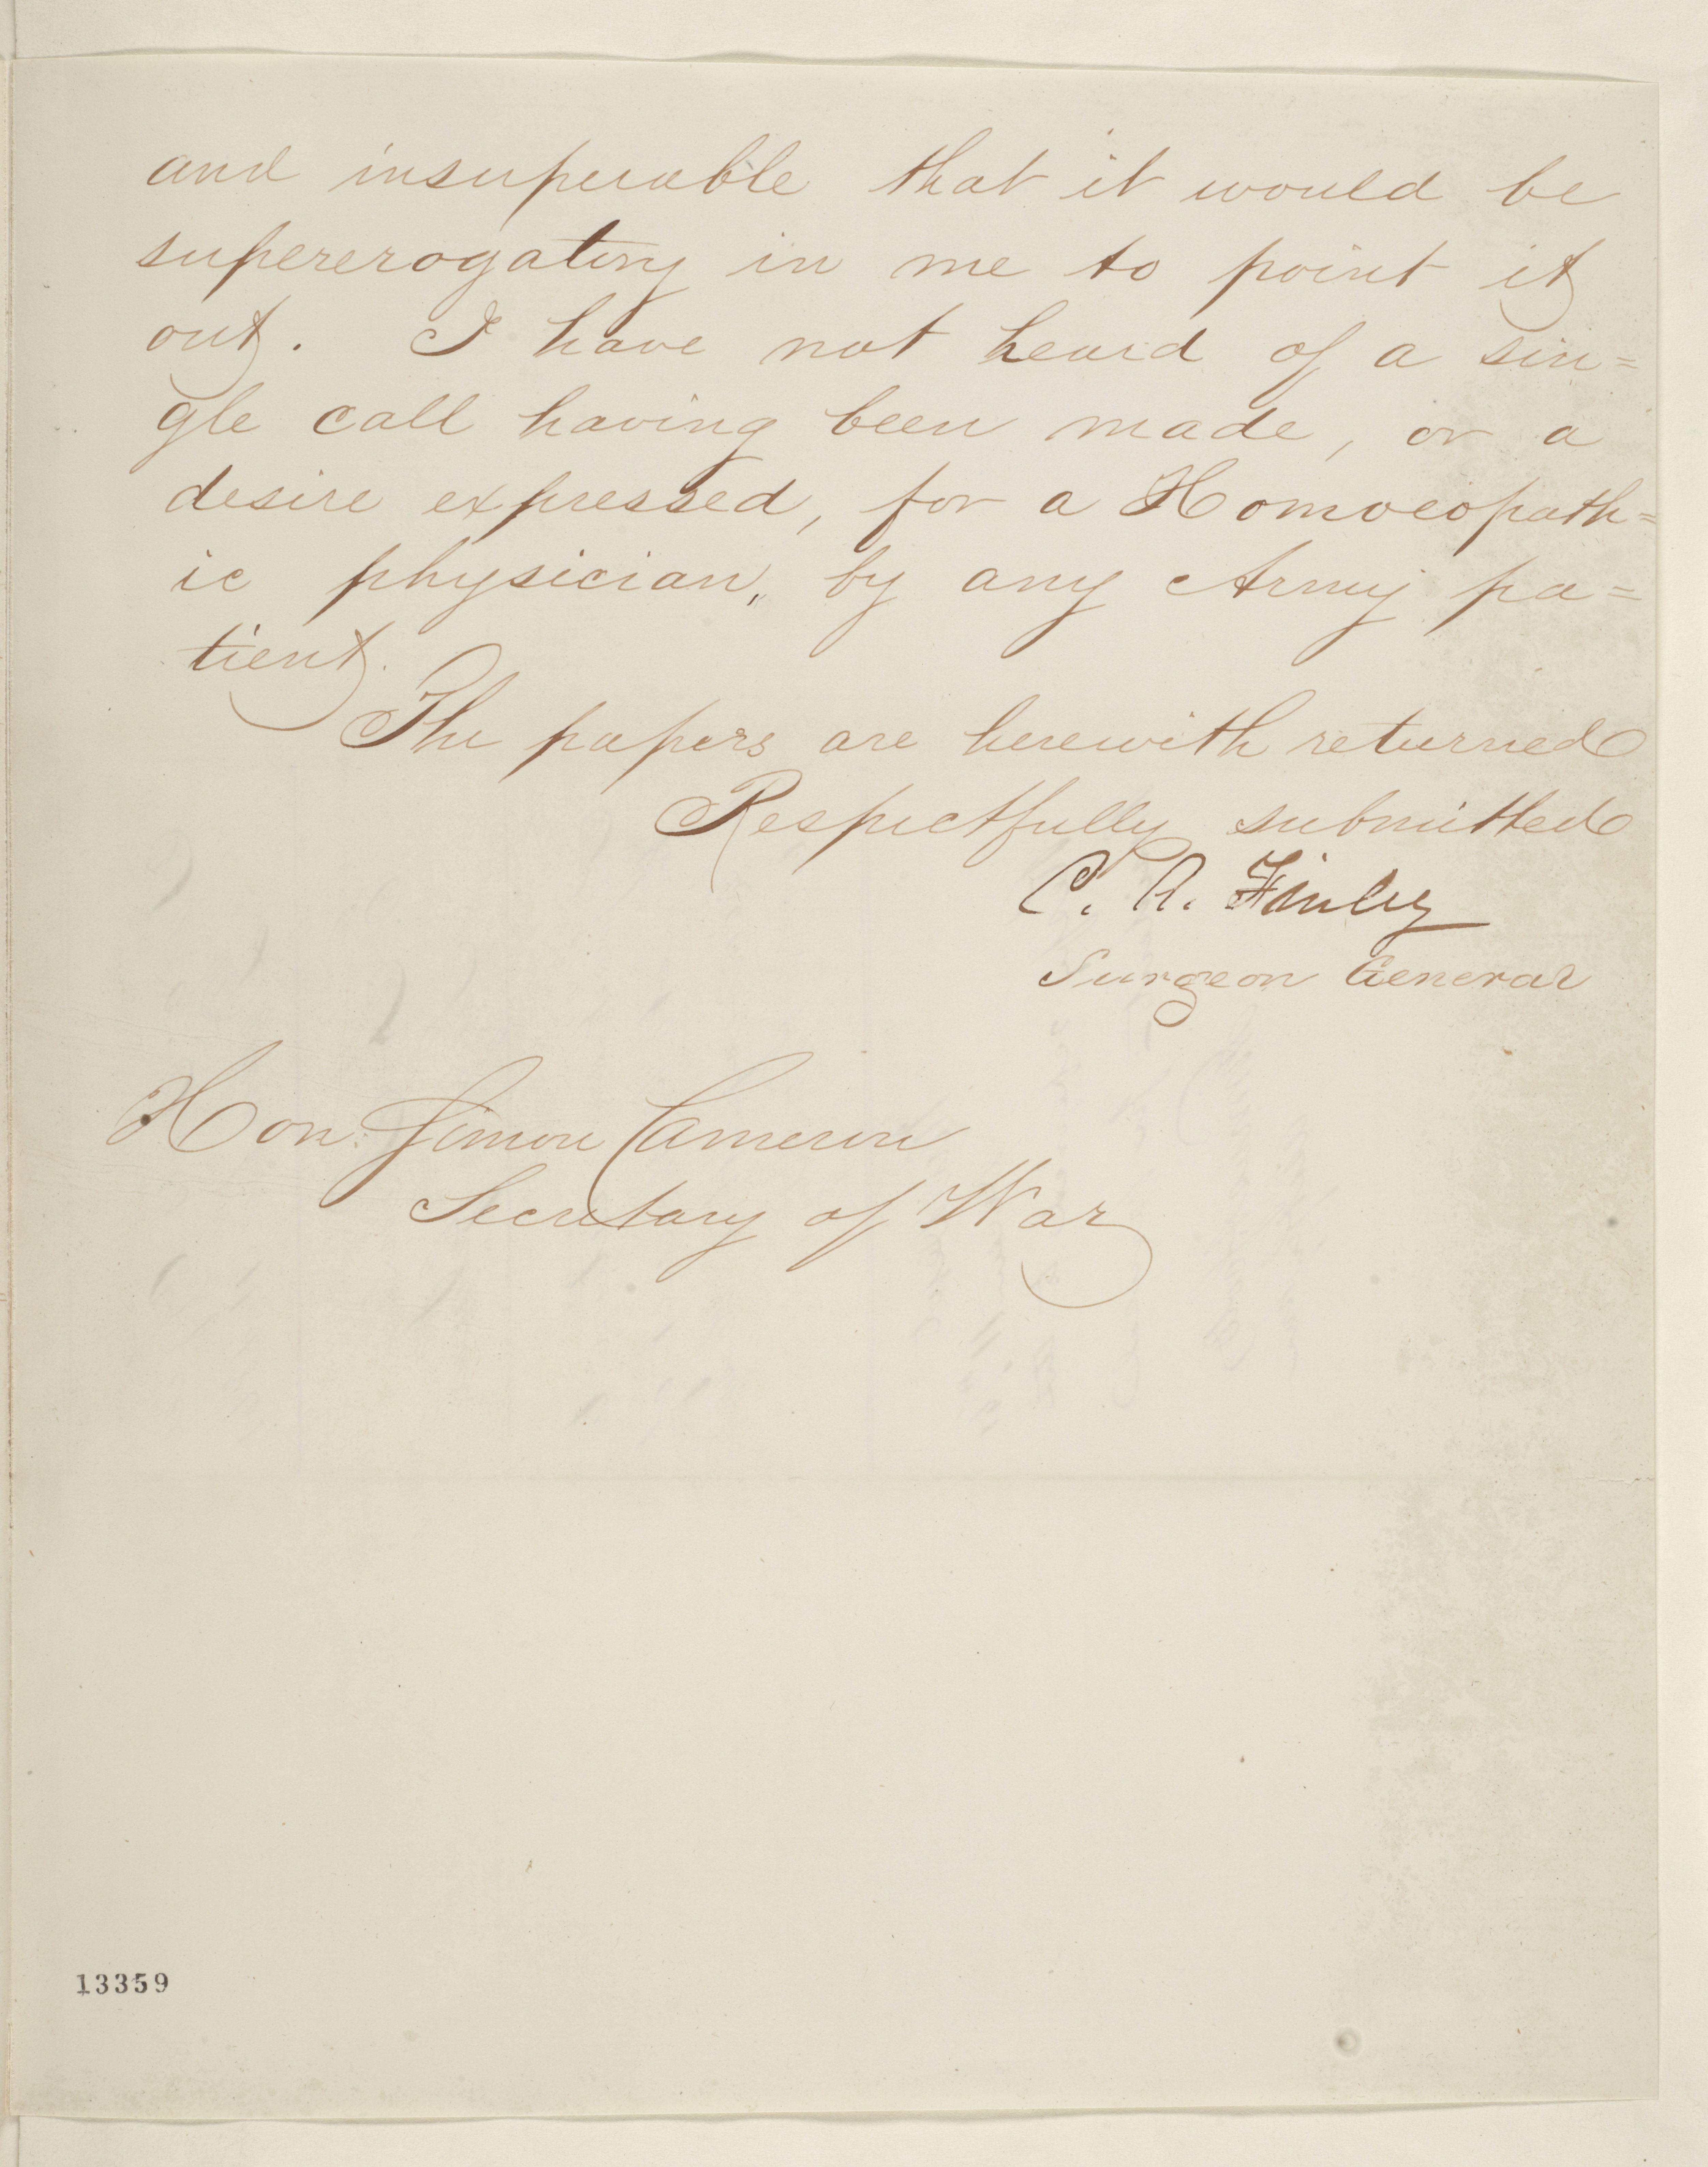 and insuperable that it would be
supererogatory in me to point it
out. I have not heard of a sin=
gle call having been made, or a
desire expressed, for a Homoeopath=
ic physician, by any Army pa=
tient.
The papers are herewith returned
Respectfully submitted
C. A. Finley
Surgeon General
Hon: Simon Cameron
Secretary of War
13359